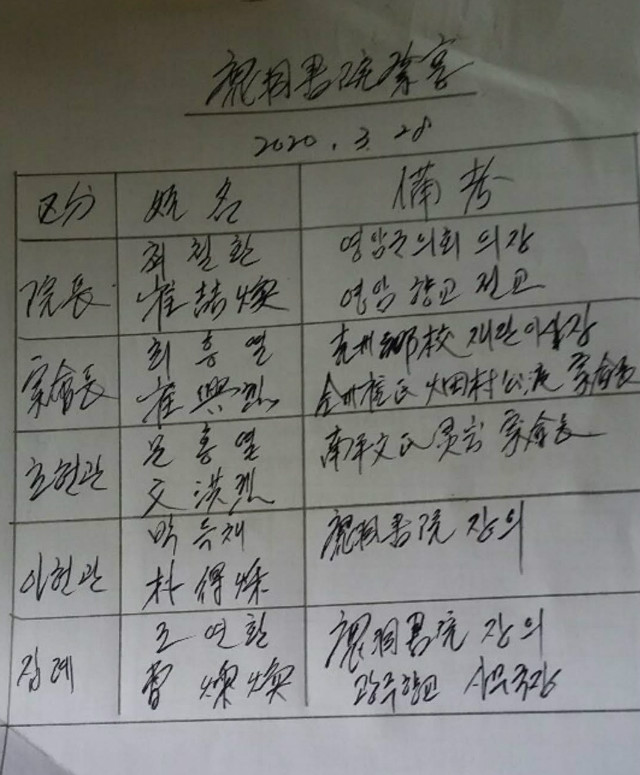 鹿洞書院祭官
2020. 3. 28
区分 姓名 備考
院長 최철환 영암군의회 의장
崔喆煥 영암향교 전교
宗會長 최흥열 光州鄕校 재단이사장
崔興烈 全州崔氏 烟村公派 宗會長
초헌관 문홍열 南平文氏 宗會長
文洪烈
아헌관 박득채 鹿洞書院 장의
朴得燦
집례 조연환 鹿洞書院 장의
曺煥 광주향교 사무국장